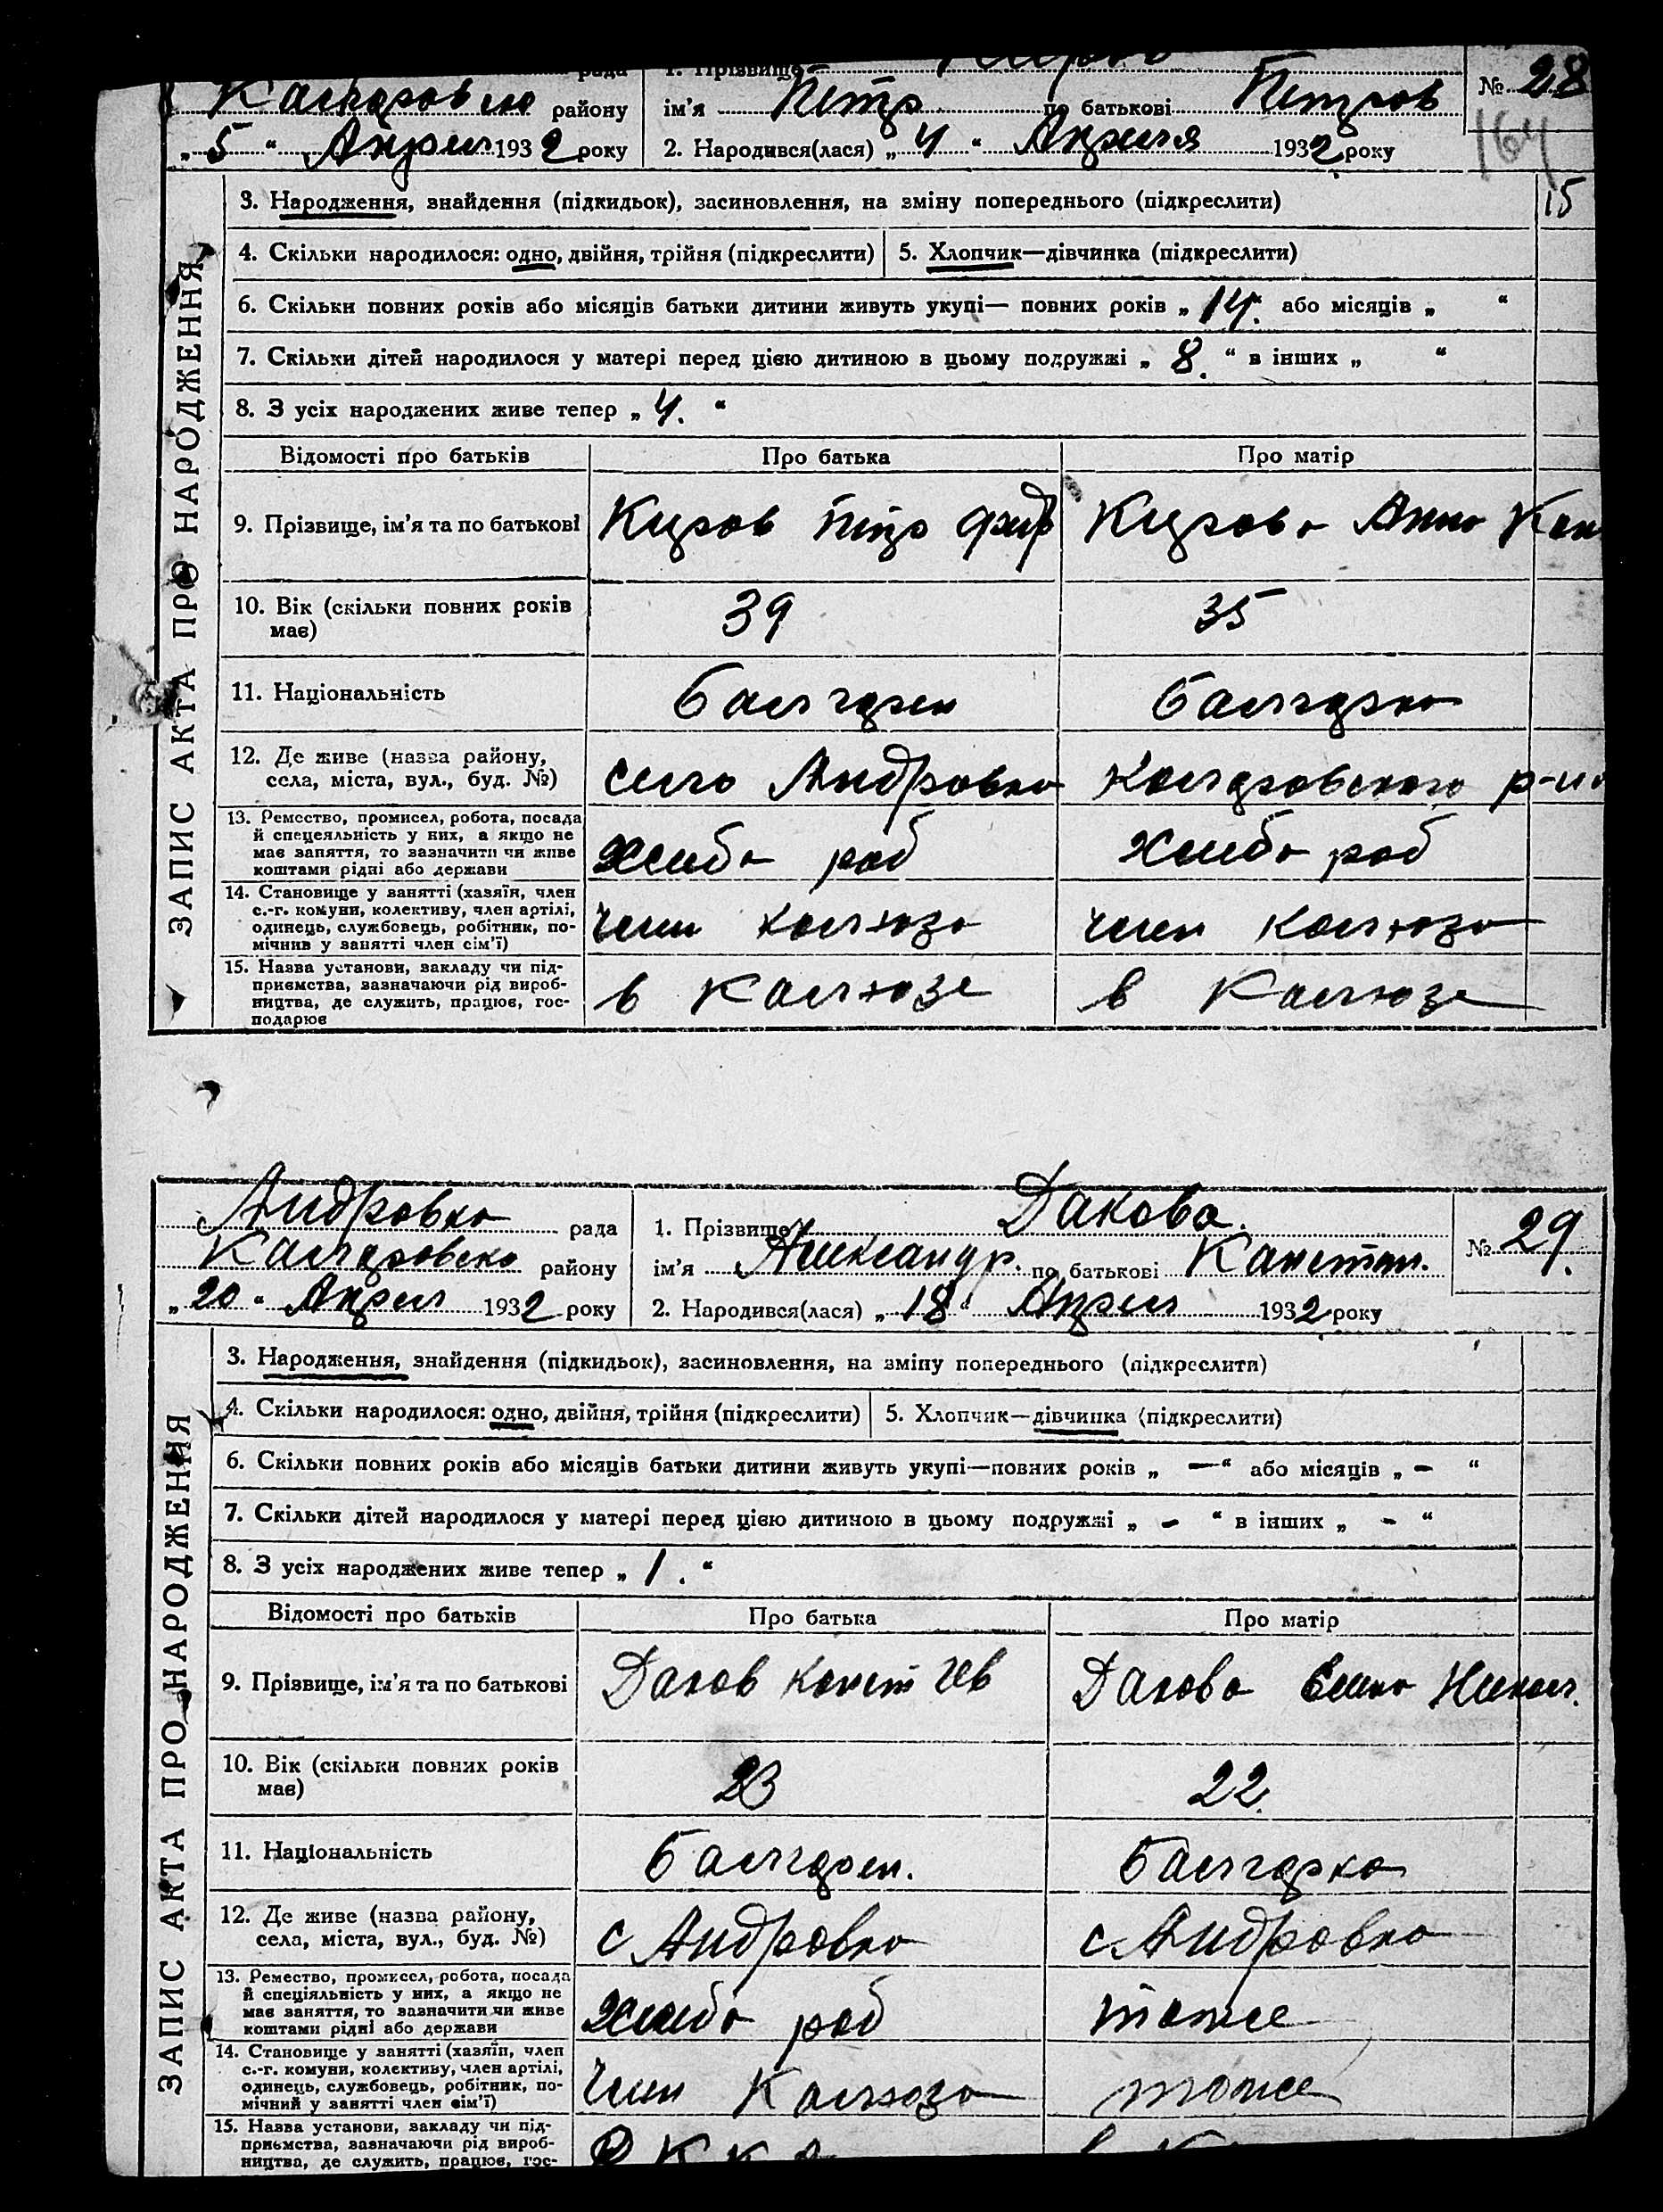 рада 1. Прізвище
Калчаровско району ім'я Петр по батькові Петров № 28
„ 5 “ Април 1932 року 2. Народився(лася) „ 4 “ Апреля 1932 року 164
3. Народження, знайдення (підкидьок), засиновлення, на зміну попереднього (підкреслити) 15
4. Скільки народилося: одно, двійня, трійня (підкреслити) 5. Хлопчик—дівчинка (підкреслити)
6. Скільки повних років або місяців батьки дитини живуть укупі— повних років „ 14. “ або місяців „ “
7. Скільки дітей народилося у матері перед цією дитиною в цьому подружжі „ 8. “ в інших „ “
8. З усіх народжених живе тепер „ 4. “
ЗАПИС АКТА ПРО НАРОДЖЕННЯ
Відомості про батьків Про батька Про матір
9. Прізвище, ім'я та по батькові Киров Петр Кирова Анна Кон
10. Вік (скільки повних років 39 35
має)
11. Національність болгарин болгарка
12. Де живе (назва району, село Андровка Колларовского р-на
села, міста, вул., буд. №)
13. Ремество, промисел, робота, посада
й спецеяльність у них, а якщо не
має заняття, то зазначити чи живе хлебо роб хлебо роб
коштами рідні або держави
14. Становище у занятті (хазяїн, член
с.-г. комуни, колективу, член артілі, член колхоза член колхоза
одинець, службовець, робітник, по-
мічнив у занятті член сім'ї)
15. Назва установи, закладу чи під-
приємства, зазначаючи рід вироб- в Колхозе в Колхозе
ництва, де служить, працює, гос-
подарює
Андровка рада 1. Прізвище Дакова.
Калларовско району ім'я Александр. по батькові Констан. № 29.
„ 20 “ Апрел 1932 року 2. Народився(лася) „ 18 “ Апрел 1932 року
3. Народження, знайдення (підкидьок), засиновлення, на зміну попереднього (підкреслити)
4. Скільки народилося: одно, двійня, трійня (підкреслити) 5. Хлопчик—дівчинка (підкреслити)
6. Скільки повних років або місяців батьки дитини живуть укупі—повних років „ — “ або місяців „ - “
7. Скільки дітей народилося у матері перед цією дитиною в цьому подружжі „ - “ в інших „ - “
8. З усіх народжених живе тепер „ 1. “
ЗАПИС АКТА ПРО НАРОДЖЕННЯ
Відомості про батьків Про батька Про матір
9. Прізвище, ім'я та по батькові Даков Конст Дакова Елена Никол.
10. Вік (скільки повних років 23 22.
має)
11. Національність болгарин. болгарка
12. Де живе (назва району, с Андровка с Андровка
села, міста, вул., буд. №)
13. Ремество, промисел, робота, посада
й спеціяльність у них, а якщо не
має заняття, то зазначити чи живе хлебо роб тоже
коштами рідні або держави
14. Становище у занятті (хазяїн, член
с.-г. комуни, колективу, член артілі, член Колхоза тоже
одинець, службовець, робітник, по-
мічний у занятті член сім'ї)
15. Назва установи, закладу чи під-
приємства, зазначаючи рід вироб-
ництва, де служить, працює, гос-